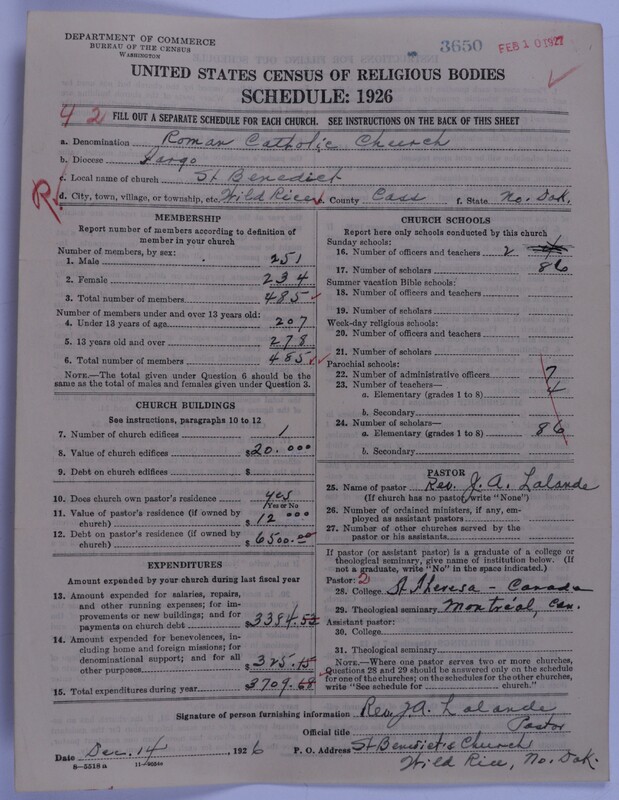 DEPARTMENT OF COMMERCE
BUREAU OF THE CENSUS
WASHINGTON
3650
FEB 10 1927
UNITED STATES CENSUS OF RELIGIOUS BODIES
SCHEDULE: 1926
42
FILL OUT A SEPARATE SCHEDULE FOR EACH CHURCH. SEE INSTRUCTIONS ON THE BACK OF THIS SHEET
a. Denomination Roman Catholic Church
b. Diocese Fargo
c. Local name of church St Benedict
R. d. City, town, village, or township, etc. Wild Rice e. County Cass f. State No. Dak.
MEMBERSHIP
Report number of members according to definition of member in your church
Number of members, by sex:
1. Male 251
2. Female 234
3. Total number of members 485
Number of members under and over 13 years old:
4. Under 13 years of age 207
5. 13 years old and over 278
6. Total number of members 485
NOTE.—The total given under Question 6 should be the
same as the total of males and females given under Question 3.
CHURCH BUILDINGS
See instructions, paragraphs 10 to 12
7. Number of church edifices 1
8. Value of church edifices $20.000
9. Debt on church edifices $
10. Does church own pastor's residence yes
(Yes or No)
11. Value of pastor's residence (if owned by
church) $12000
12. Debt on pastor's residence (if owned by
church) $6500.00
EXPENDITURES
Amount expended by your church during last fiscal year
13. Amount expended for salaries, repairs,
and other running expenses; for im-
provements or new buildings; and for
payments on church debt $3384.53
14. Amount expended for benevolences, in-
cluding home and foreign missions; for
denominational support; and for all
other purposes $325.15
15. Total expenditures during year $3709.68
CHURCH SCHOOLS
Report here only schools conducted by this church
Sunday schools:
16. Number of officers and teachers 2
17. Number of scholars 86
Summer vacation Bible schools:
18. Number of officers and teachers
19. Number of scholars
Week-day religious schools:
20. Number of officers and teachers
21. Number of scholars
Parochial schools:
22. Number of administrative officers
23. Number of teachers—
a. Elementary (grades 1 to 8) 4
b. Secondary
24. Number of scholars—
a. Elementary (grades 1 to 8) 86
b. Secondary
PASTOR
25. Name of pastor Rev. J. A. Lalande
(If church has no pastor, write "None")
26. Number of ordained ministers, if any, em-
ployed as assistant pastors
27. Number of other churches served by the
pastor or his assistants
If pastor (or assistant pastor) is a graduate of a college or
theological seminary, give name of institution below. (If
not a graduate, write "No" in the space indicated.)
Pastor: 2
28. College St Theresa - Canada
29. Theological seminary Montréal, Can.
Assistant pastor:
30. College
31. Theological seminary
NOTE.—Where one pastor serves two or more churches,
Questions 28 and 29 should be answered only on the schedule
for one of the churches; on the schedules for the other churches,
write "See schedule for church."
Signature of person furnishing information Rev. J. A. Lalande
Official title Pastor
Date Dec. 14, 1926 P. O. Address St Benedict's Church
Wild Rice, No. Dak.
8-5518a